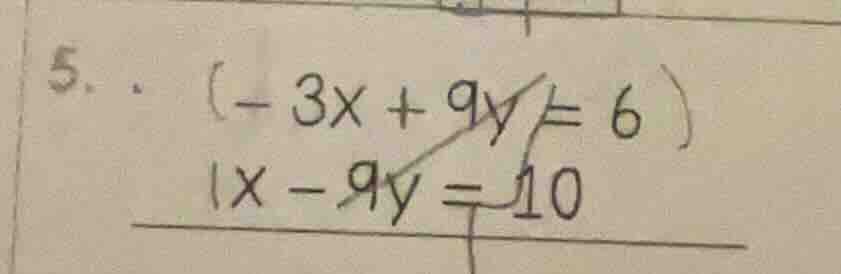 5. . (- 3x + 9y = 6)
1x - 9y = 10